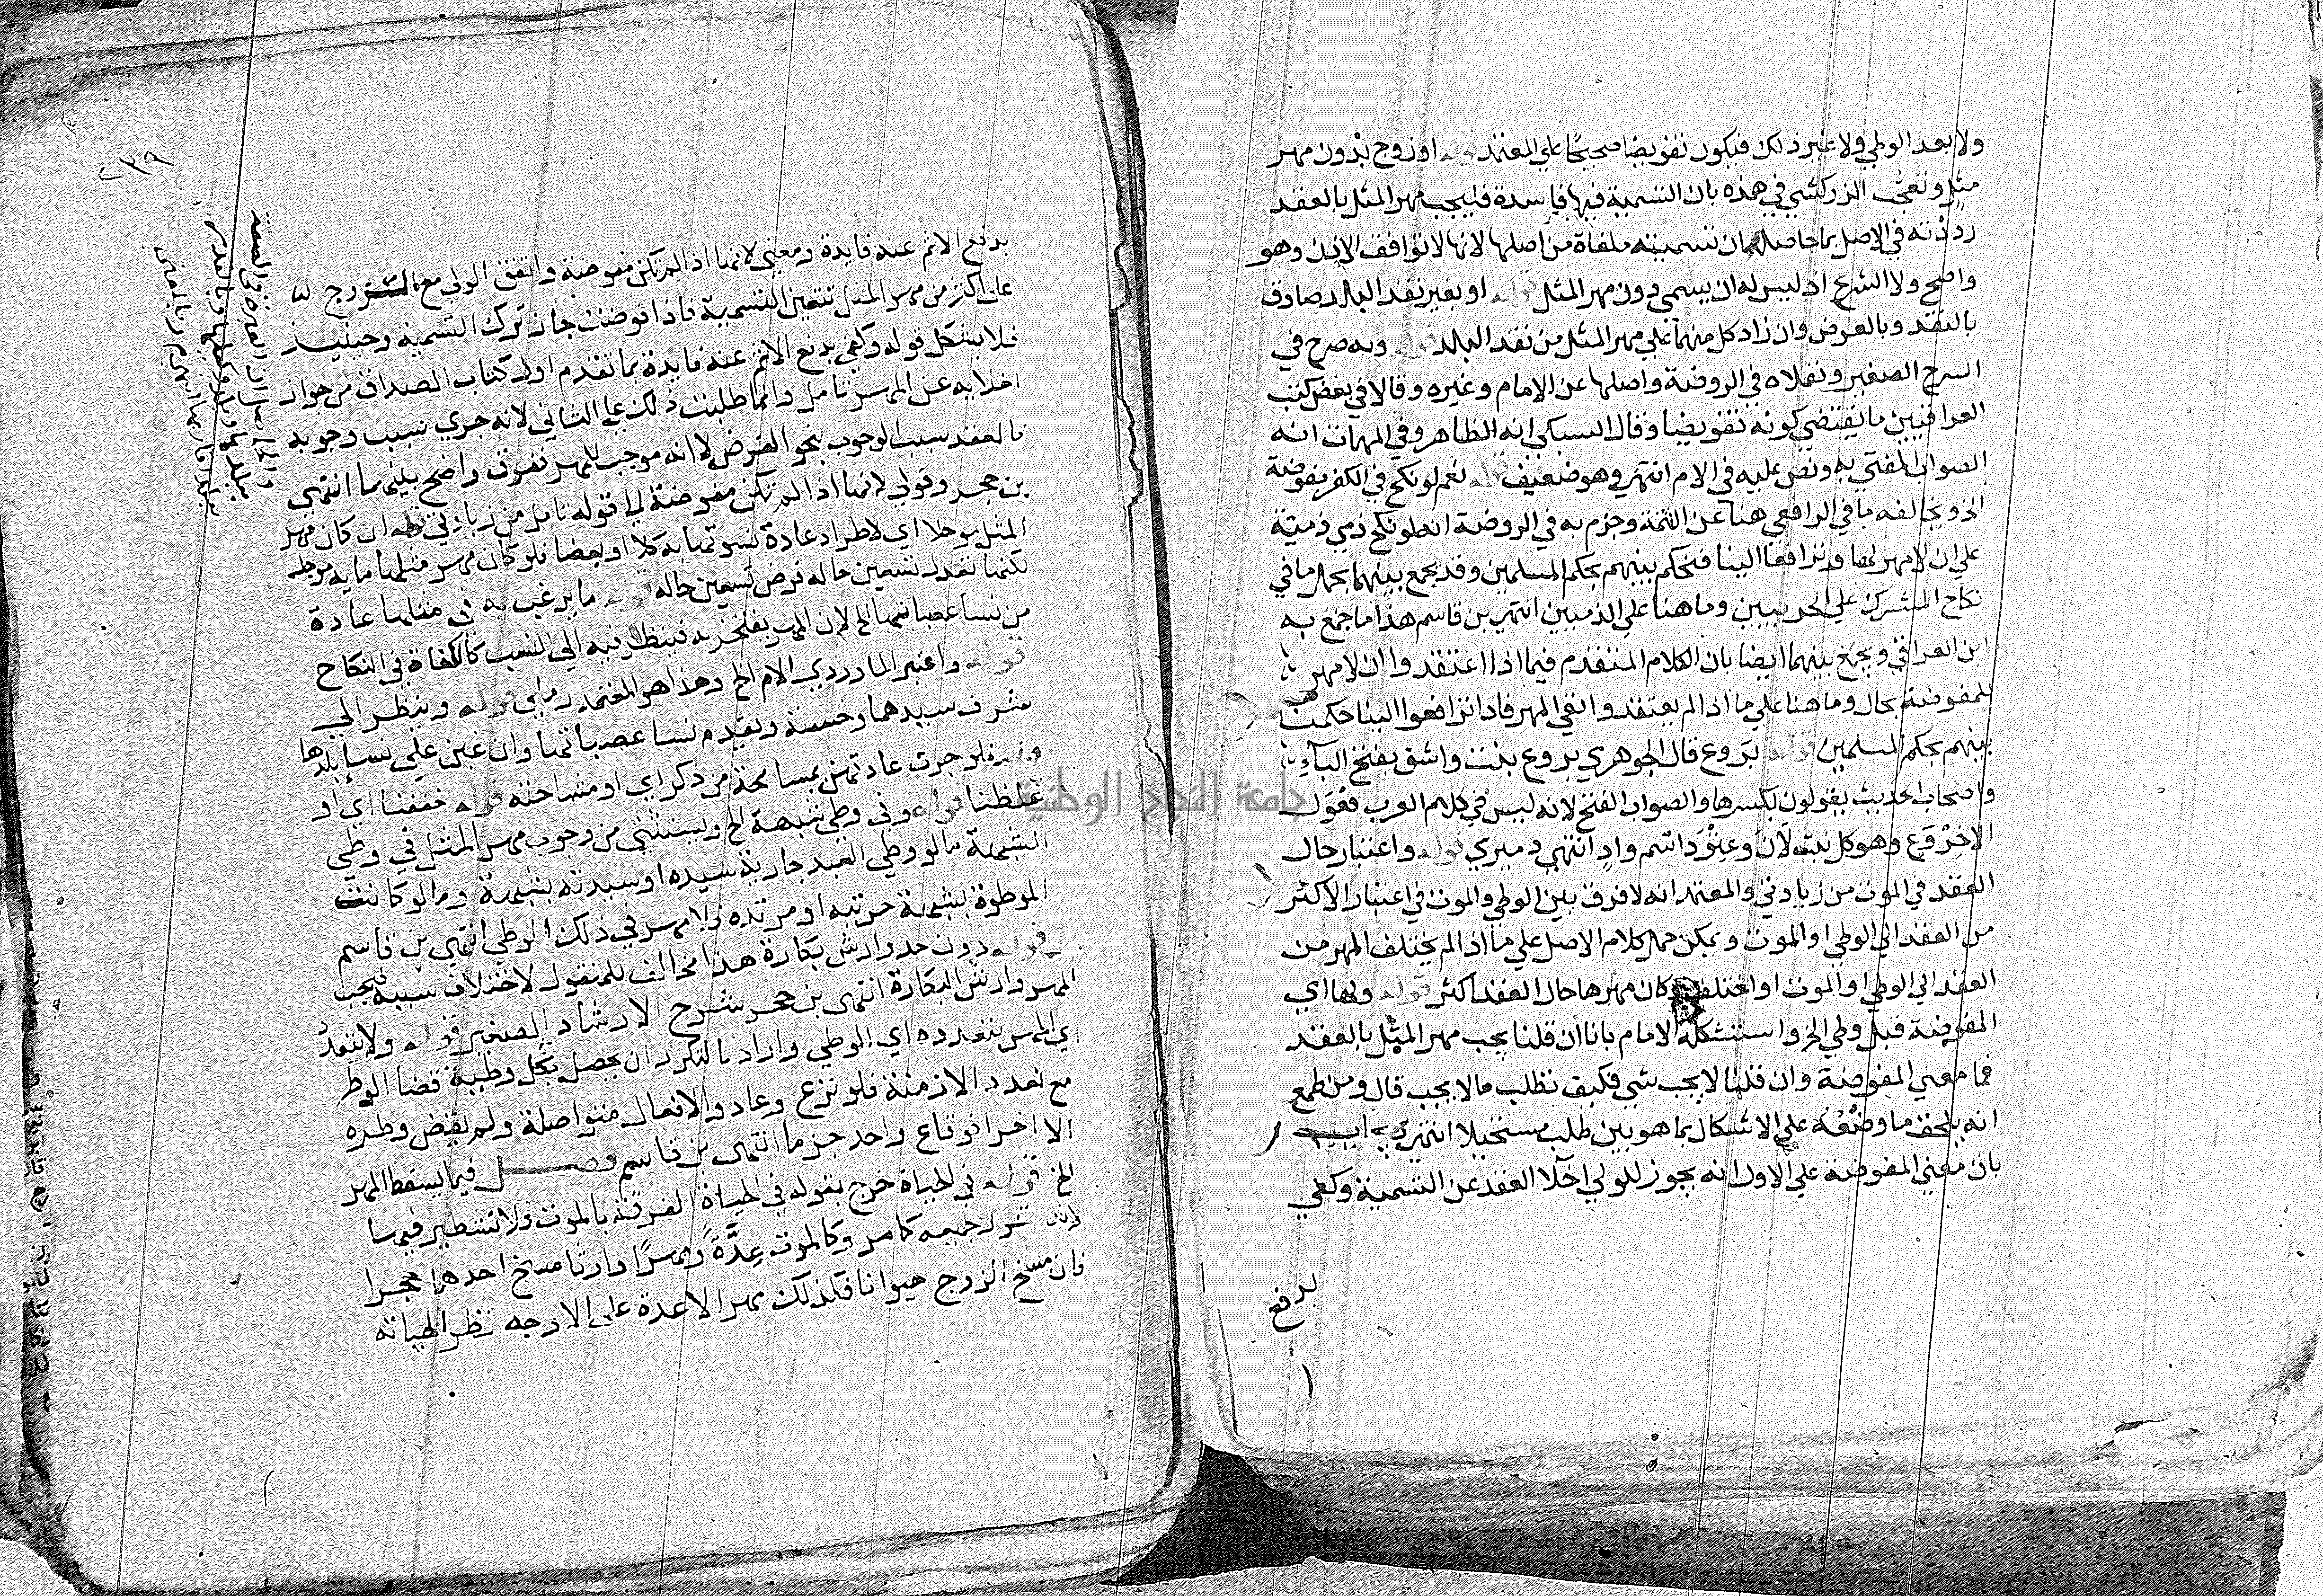 ولا بعد الوطي ولا غير ذلك فيكون تفويضا صحيحا علي المعتمد قوله او زوج بدون مهر
مثل وتعجب الزركشي في هذه بان التسمية فيها فاسدة فليجب مهر المثل بالعقد
رددته في الاصل بما حاصله ان تسميته ملغاة من اصلها لانها لا توافق الاذن وهو
واضح ولا الشرع اذ ليس له ان يسمي دون مهر المثل قوله او بغير نقد البلد صادق
بالنقد وبالعرض وان زاد كل منهما علي مهر المثل من نقد البلد قوله وبه صرح في
الشرح الصغير ونقلاه في الروضة واصلها عن الامام وغيره وقالا في بعض كتب
العراقيين ما يقتضي كونه تفويضا وقال السبكي انه الظاهر وفي المهمات انه
الصواب المفتي به ونص عليه في الام انتهي وهو ضعيف قوله نعم لو نكح في الكفر مفوضة
الخ ويخالفه ما في الرافعي هنا عن التتمة وجزم به في الروضة انه لو نكح ذمي ذمية
علي ان لا مهر لها وترافعا الينا فنحكم بينهم بحكم المسلمين وقد يجمع بينهما بحمل ما في
نكاح المشرك علي الحربيين وما هنا علي الذميين انتهي بن قاسم هذا ما جمع به
ابن العراقي ويجمع بينهما ايضا بان الكلام المتقدم فيما اذا اعتقدوا ان لا مهر
للمفوضة بحال وما هنا علي ما اذا لم يعتقدوا نفي المهر فاذا ترافعوا الينا حكمنا
بينهم بحكم المسلمين قوله بروع قال الجوهري بروع بنت واشق بفتح الباء
واصحاب الحديث يقولون بكسرها والصواب الفتح لانه ليس في كلام العرب فعول
الا خروع وهو كل نبت لان وعتود اسم واد انتهي دميري قوله واعتبار حال
العقد في الموت من زيادتي والمعتمد انه لا فرق بين الوطي والموت في اعتبار الاكثر
من العقد الي الوطي او الموت ويمكن حمل كلام الاصل علي ما اذا لم يختلف المهر من
العقد الي الوطي او الموت او اختلف وكان مهرها حال العقد اكثر قوله ولها اي
المفوضة قبل وطي الخ واستشكله الامام بانا ان قلنا يجب مهر المثل بالعقد
فما معني المفوضة وان قلنا لا يجب شي فكيف نطلب ما لا يجب قال ومن طمع
انه يلحق ما وضعه علي الاشكال بما هو بين طلب مستحيلا انتهي ويجاب
بان معني المفوضة علي الاول انه يجوز للولي اخلا العقد عن التسمية وكفي
بدفع
٢٣٩
بدفع الاثم عنه فايدة ومعني لانها اذا لم تكن مفوضة واتفق الولي مع الزوج
على اكثر من مهر المثل تتعين التسمية فاذا فوضت جاز ترك التسمية وحينيذ
فلا يشكل قوله وكفي بدفع الاثم عنه فايدة بما تقدم اول كتاب الصداق من جواز
اخلايه عن المهر تامل وانما طلبت ذلك علي الثاني لانه جري سبب وجوبه
فالعقد سبب الوجوب بنحو الفرض لا انه موجب للمهر ففرق واضح بينهما انتهى
بن حجر وقولي لانها اذا لم تكن مفوضة الي قوله تامل من زيادتي قوله ان كان مهر
المثل موجلا اي لاطراد عادة نسوتها به كلا او بعضا فلو كان مهر مثلها مايه موجلة
لكنها تعدل تسعين حاله فرض تسعين حاله قوله ما يرغب به في مثلها عادة
من نسا عصباتها الخ لان المهر يفتخر به فينظر فيه الي النسب كالكفاة في النكاح
قوله واعتبر الماوردي الام الخ وهذا هو المعتمد رملي قوله وينظر الي
شرف سيدها وخسته ويقدم نسا عصباتها وان غبن علي نسا بلدها
قوله فلو جرت عادتهن بمسامحة من ذكر اي او مشاحته قوله خففنا اي او
غلظنا قوله وفي وطي شبهة الخ ويستثني من وجوب مهر المثل في وطي
الشبهة ما لو وطي العبد جارية سيده او سيدته بشبهة وما لو كانت
الموطوة بشبهة حربية او مرتدة فلا مهر في ذلك الوطي انتهى بن قاسم
قوله دون حد وارش بكارة هذا مخالف للمنقول لاختلاف سببه فيجب
المهر وارش البكارة انتهى بن حجر شرح الارشاد الصغير قوله ولا يتعدد
اي المهر بتعدده اي الوطي واراد بالتكرر ان يحصل بكل وطية قضا الوطر
مع تعدد الازمنة فلو نزع وعاد والافعال متواصلة ولم يقض وطره
الا اخرا فوقاع واحد جزما انتهى بن قاسم فصل فيما يسقط المهر
الخ قوله في الحياة خرج بقوله في الحياة الفرقة بالموت فلا تشطير فيها
وكالموت عدة ومهرا وارثا مسخ احدهما حجرا
فان مسخ الزوج حيوانا فكذلك مهرا لا عدة على الاوجه نظرا لحياته
جامعة النجاح الوطنية